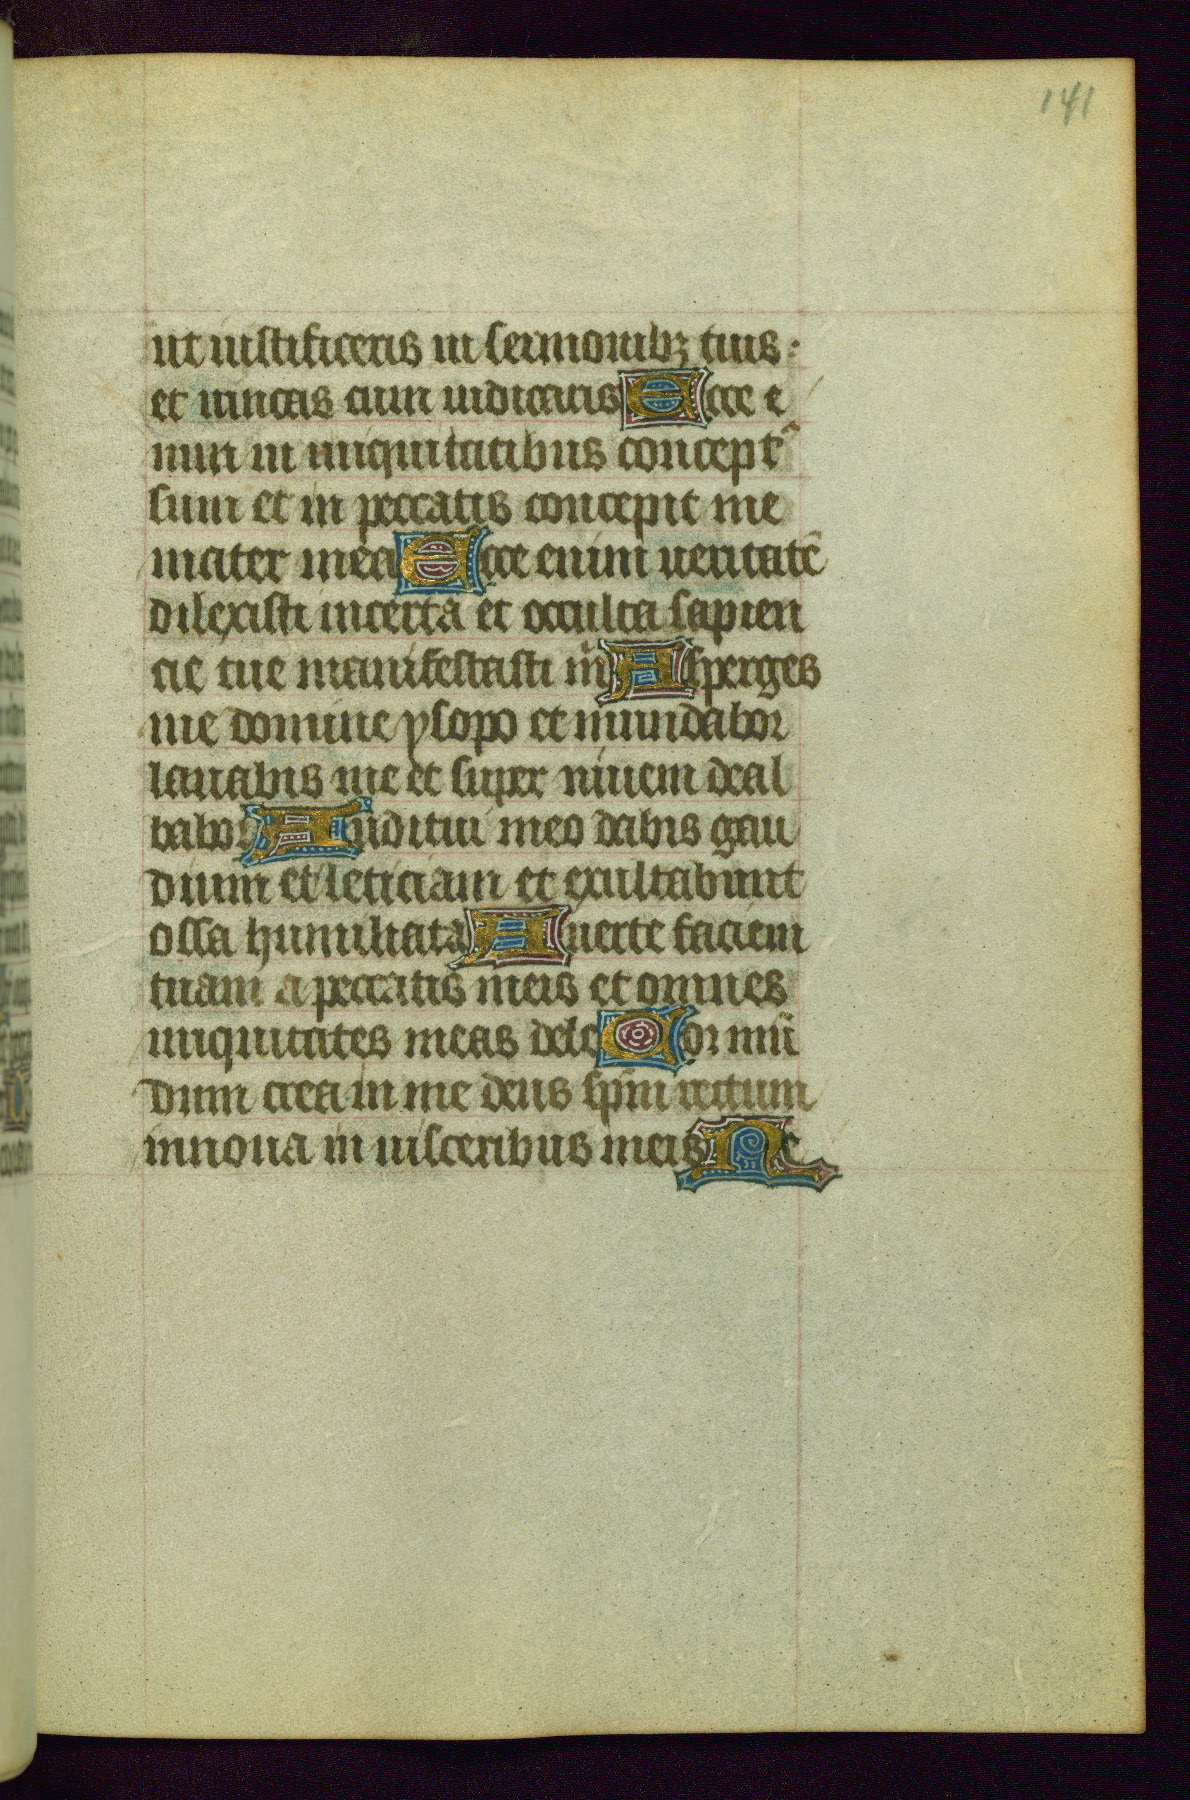 141
ut iustificeris in sermonibꝫ tuis :
et uincas cum iudicaris Ecce e
nim in iniquitatibus concept᷒
sum et in peccatis concepit me
mater mea Ecce enim ueritatē
dilexisti incerta et occulta sapien
cie tue manifestasti m̄ Asperges
me domine ysopo et mundabor
lauabis me et super niuem deal
babor Auditui meo dabis gau
dium et leticiam et exultabunt
ossa humiliata Auerte faciem
tuam a peccatis meis et omnes
iniquitates meas dele Cor mū
dum crea in me deus sp̄m rectum
innoua in uisceribus meis Ne